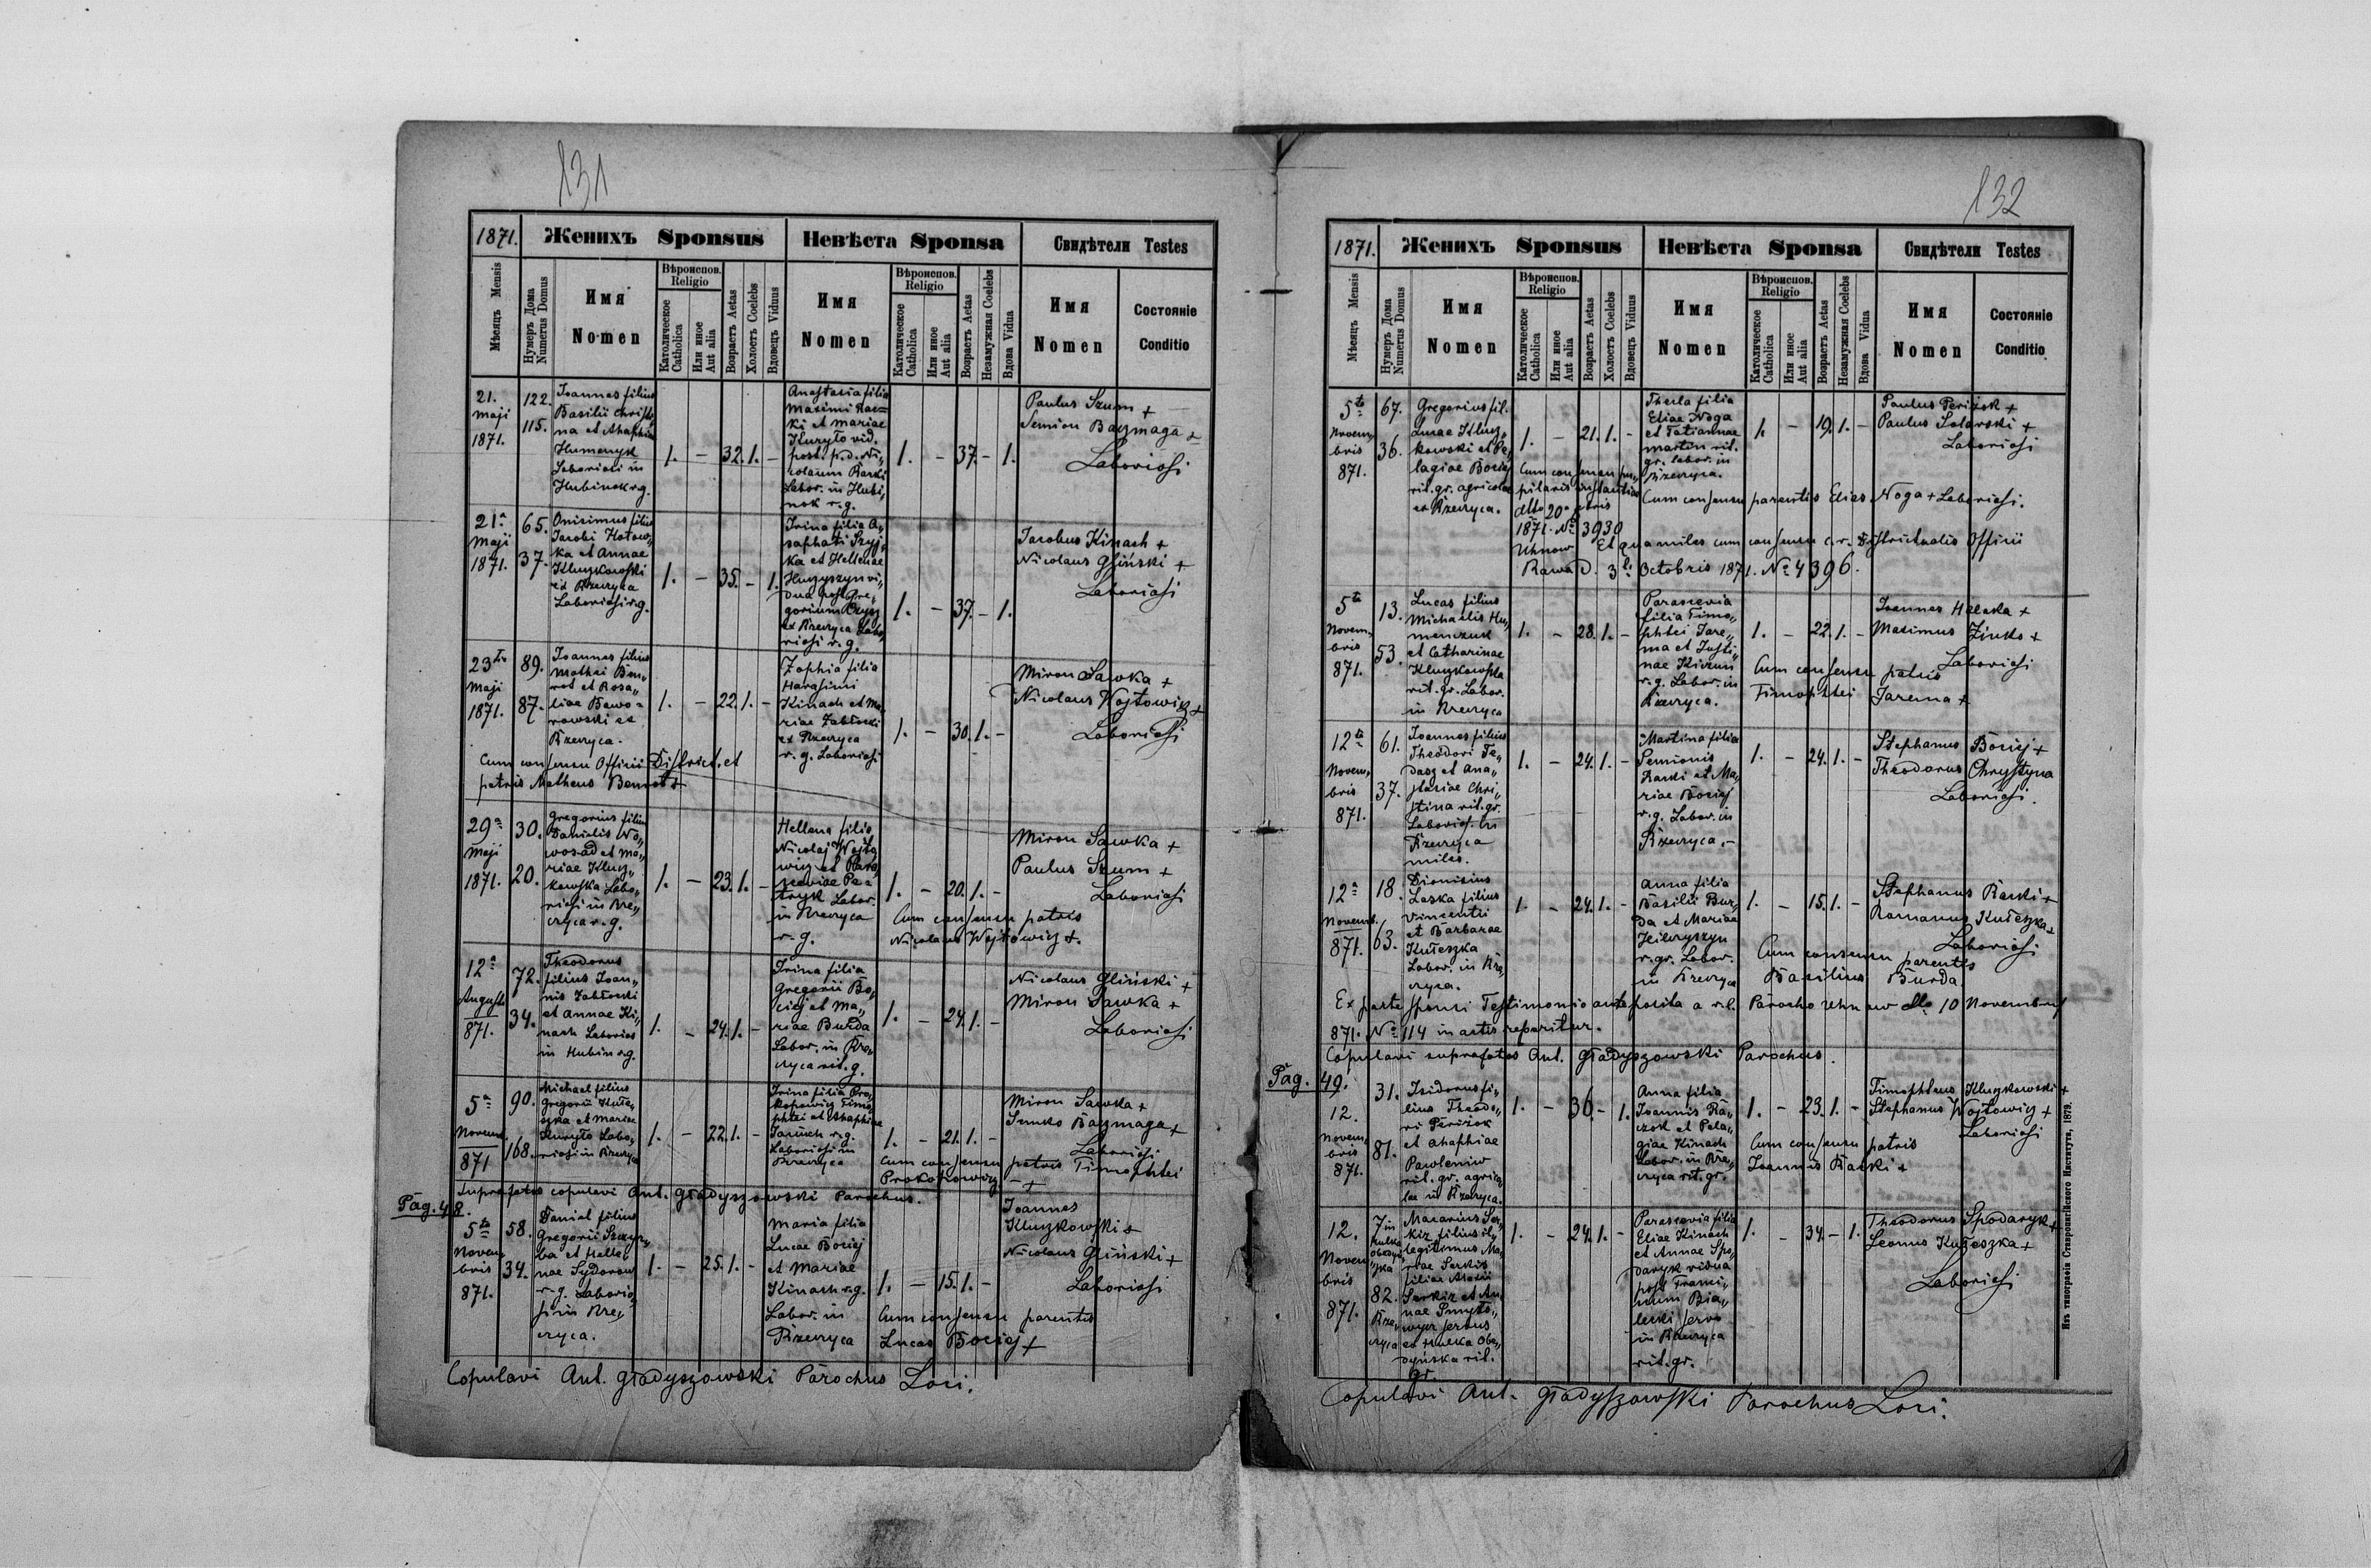 131
1871. Женихъ Sponsus Невѣста Sponsa Свидѣтели Testes
Мѣсяцъ Mensis
Нумеръ Дома Numerus Domus
Имя Nomen
Вѣроиспов. Religio
Католическое Catholica
Или иное Aut alia
Возрастъ Aetas
Холостъ Coelebs
Вдовецъ Viduus
Имя Nomen
Вѣроиспов. Religio
Католическое Catholica
Или иное Aut alia
Возрастъ Aetas
Незамужная Coelebs
Вдова Vidua
Имя Nomen
Состояніе Conditio
21. Maji 1871.
122. 115.
Joannes filius
Basilii Christi
na et Ahaphia
Humenyuk
Laboriosi in
Hubinok r.g.
1. – 32. 1. –
Anastasia filia
Maximi Rac=
ki et Mariae
Kuryło vid.
post p. d. Ni„
colaum Racki
Labor. in Hubi„
nok r. g.
1. – 37. – 1.
Paulus Szum +
Semion Baczmaga +
Laboriosi
21ª Maji 1871.
65. 37.
Onisimus filius
Jacobi Hotow„
ka et Annae
Kluczkowski
ex Rzeczyca
Laboriosi r.g.
1. – 35. – 1.
Irina filia
Hellenae
dua post Gre„
gorium
ex Rzeczyca Labo
riosi r. g.
1. – 37. – 1.
Jacobus Kinach +
Nicolaus Gliński +
Laboriosi
23tia Maji 1871.
89. 87.
Joannes filius
Mathei Ben„
rot et Rosa„
liae Bawo=
rowski ex
Rzeczyca.
1. – 22. 1. –
Zophia filia
Harasimi
Kinach et Ma
riae Zabłocki
ex Rzeczyca
r. g. Laboriosi
1. – 30. 1. –
Miron Sawka +
Nicolaus Wojtowicz +
Laboriosi
Cum consensu Officii District. et
patris Matheus Benrot +
29ª Maji 1871.
30. 20.
Gregorius filius
Danielis No„
wosad et Ma„
riae Klucz„
kowska Labo„
riosi in Rze„
czyca r. g.
1. – 23. 1. –
Hellena filia
Nicolai Wojto
wicz et Para
sceviae Pa=
tryk Labor.
in Rzeczyca
r. g.
1. – 20. 1. –
Miron Sawka +
Paulus Szum +
Laboriosi
Cum consensu patris
Nicolaus Wojtowicz +.
12ª Augusti 871.
72. 34.
Theodorus
filius Joan„
nis Zabłocki
et Annae Ki„
nach Laborios
in Hubin r.g.
1. – 24. 1. –
Irina filia
Gregorii Bo„
ciej et Ma„
riae Burda
Labor. in Rze„
czyca rit. g.
1. – 24. 1. –
Nicolaus Gliński +
Miron Sawka +
Laboriosi
5ª Novemb. 871
90. 168.
Michael filius
Gregorii Kułe„
szka et Mariae
Kuryło Labo„
riosi in Rzeczyca
1. – 22. 1. –
Irina filia Pro„
kopowicz Timo„
phtei et Ahaphiae
r. g.
Laboriosi in
Rzeczyca
1. – 21. 1. –
Miron Sawka +
Semko Baczmaga +
Laboriosi
Cum consensu patris Timophtei
Prokopowicz – +
Suprafatos copulavi Ant. Gładyszowski Parochus.
Pag. 48.
5ta Novembris 871.
58. 34.
Daniel filius
Gregorii
ba et Helle„
nae Sydorow
r. g. Laborio„
si in Rze„
czyca.
1. – 25. 1. –
Maria filia
Lucae Bociej
et Mariae
Kinach r. g.
Labor. in
Rzeczyca
1. – 15. 1. –
Joannes
Kluczkowski +
Nicolaus Gliński +
Laboriosi
Cum consensu parentis
Lucas Bociej +
Copulavi Ant. Gładyszowski Parochus Loci.
132
1871. Женихъ Sponsus Невѣста Sponsa Свидѣтели Testes
Мѣсяцъ Mensis
Нумеръ Дома Numerus Domus
Имя Nomen
Вѣроиспов. Religio
Католическое Catholica
Или иное Aut alia
Возрастъ Aetas
Холостъ Coelebs
Вдовецъ Viduus
Имя Nomen
Вѣроиспов. Religio
Католическое Catholica
Или иное Aut alia
Возрастъ Aetas
Незамужная Coelebs
Вдова Vidua
Имя Nomen
Состояніе Conditio
5ta Novembris 871.
67. 36.
Gregorius fil.
Lucae Klucz„
kowski et Pe„
lagiae Bociej
rit. gr. agricolae
ex Rzeczyca.
1. – 21. 1. –
Thecla filia
Eliae Noga
et Tatiannae
Martin rit.
gr. Labor. in
Rzeczyca.
1. – 19. 1. –
Paulus Periżok +
Paulus Solarski +
Laboriosi
Cum consensu pu„
pilaris instantiae
dtto 20
1871. No 3930
Uhnow
Cum consensu parentis Elias Noga + Laboriosi.
Et qua miles cum consensu c. r. Districtualis Officii
Rawa D. 3 Octobris 1871. No 4396.
5ta Novembris 871.
13. 53.
Lucas filius
Michaelis Hu„
menczuk
et Catharinae
Kluczkowska
rit. gr. Labor.
in Rzeczyca
1. – 28. 1. –
Parascevia
filia Timo„
phtei Jare„
ma et Justi„
nae
r. g. Labor. in
Rzeczyca.
1. – 22. 1. –
Joannes Halaka +
Maximus Zinko +
Laboriosi
Cum consensu patris
Timophtei Jarema +
12ta Novembris 871.
61. 37.
Joannes filius
Theodori Fe„
dasz et Ana„
stasiae Chri„
stina rit. gr.
Laborios. in
Rzeczyca
miles.
1. – 24. 1. –
Martina filia
Semionis
Racki et Ma„
riae Bociej
r. g. Labor. in
Rzeczyca. –
1. – 24. 1. –
Stephanus Bociej +
Theodorus Chrystyna
Laboriosi.
12ª Novemb. 871.
18. 63.
Dionisius
Laska filius
Vincentii
et Barbarae
Kułeszka
Labor. in Rze
czyca.
1. – 24. 1. –
Anna filia
Basilii Bur„
da et Mariae
r. gr. Labor.
in Rzeczyca
1. – 15. 1. –
Stephanus Racki +
Romanus Kułeszka +
Laboriosi
Cum consensu parentis
Basilius Burda.
Ex parte sponsi Testimonio a r. l. Parocho 10 Novembris
871. No 114 in actis reperitur.
Copulavi suprafatos Ant. Gładyszowski Parochus.
Pag. 49.
12. Novembris 871.
31. 81.
Isidorus fi„
lius Theodo„
ri Periżok
et Ahaphiae
Pawleniw
rit. gr. agrico
lae in Rzeczyca.
1. – 36. – 1.
Anna filia
Joannis Ra„
czok et Pela„
giae Kinach
Labor. in Rze„
czyca rit. gr.
1. – 23. 1. –
Timophteus Kluczkowski +
Stephanus Wojtowicz +
Laboriosi
Cum consensu patris
Joannis Racki +
12. Novembris 871.
7 in
82. Rze„
czyca
Macarius Ser„
kiz filius il„
legitimus Ma„
riae Serkis
filiae
Serkiz et An
nae
servus
ex Hulka Obe„
dyńska rit.
gr.
1. – 24. 1. –
Parascevia filia
Eliae Kinach
et Annae Spo„
daryk vidua
post Franci„
scum Bia„
lecki servo
in Rzeczyca
rit. gr.
1. – 34. – 1.
Theodorus Spodaryk +
Leonus Kułeszka +
Laboriosi
Copulavi Ant. Gładyszowski Parochus Loci.
Изъ типографіи Ставропигійского Института, 1879.